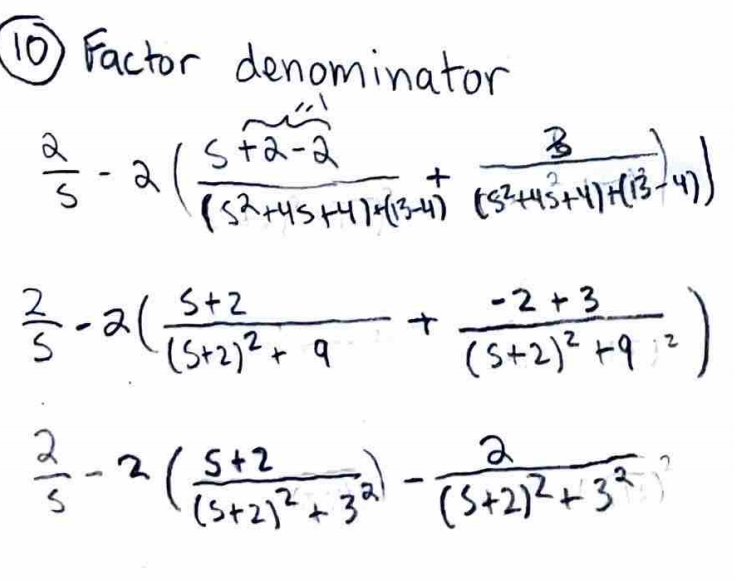 ⑩ Factor denominator
2/s - 2 ( (s+2-2)/((s²+4s+4)+(13-4)) + 3/((s²+4s+4)+(13-4)) )
2/s - 2 ( (s+2)/((s+2)² + 9) + (-2+3)/((s+2)² + 9) )
2/s - 2 ( (s+2)/((s+2)² + 3²) ) - 2/((s+2)² + 3²)